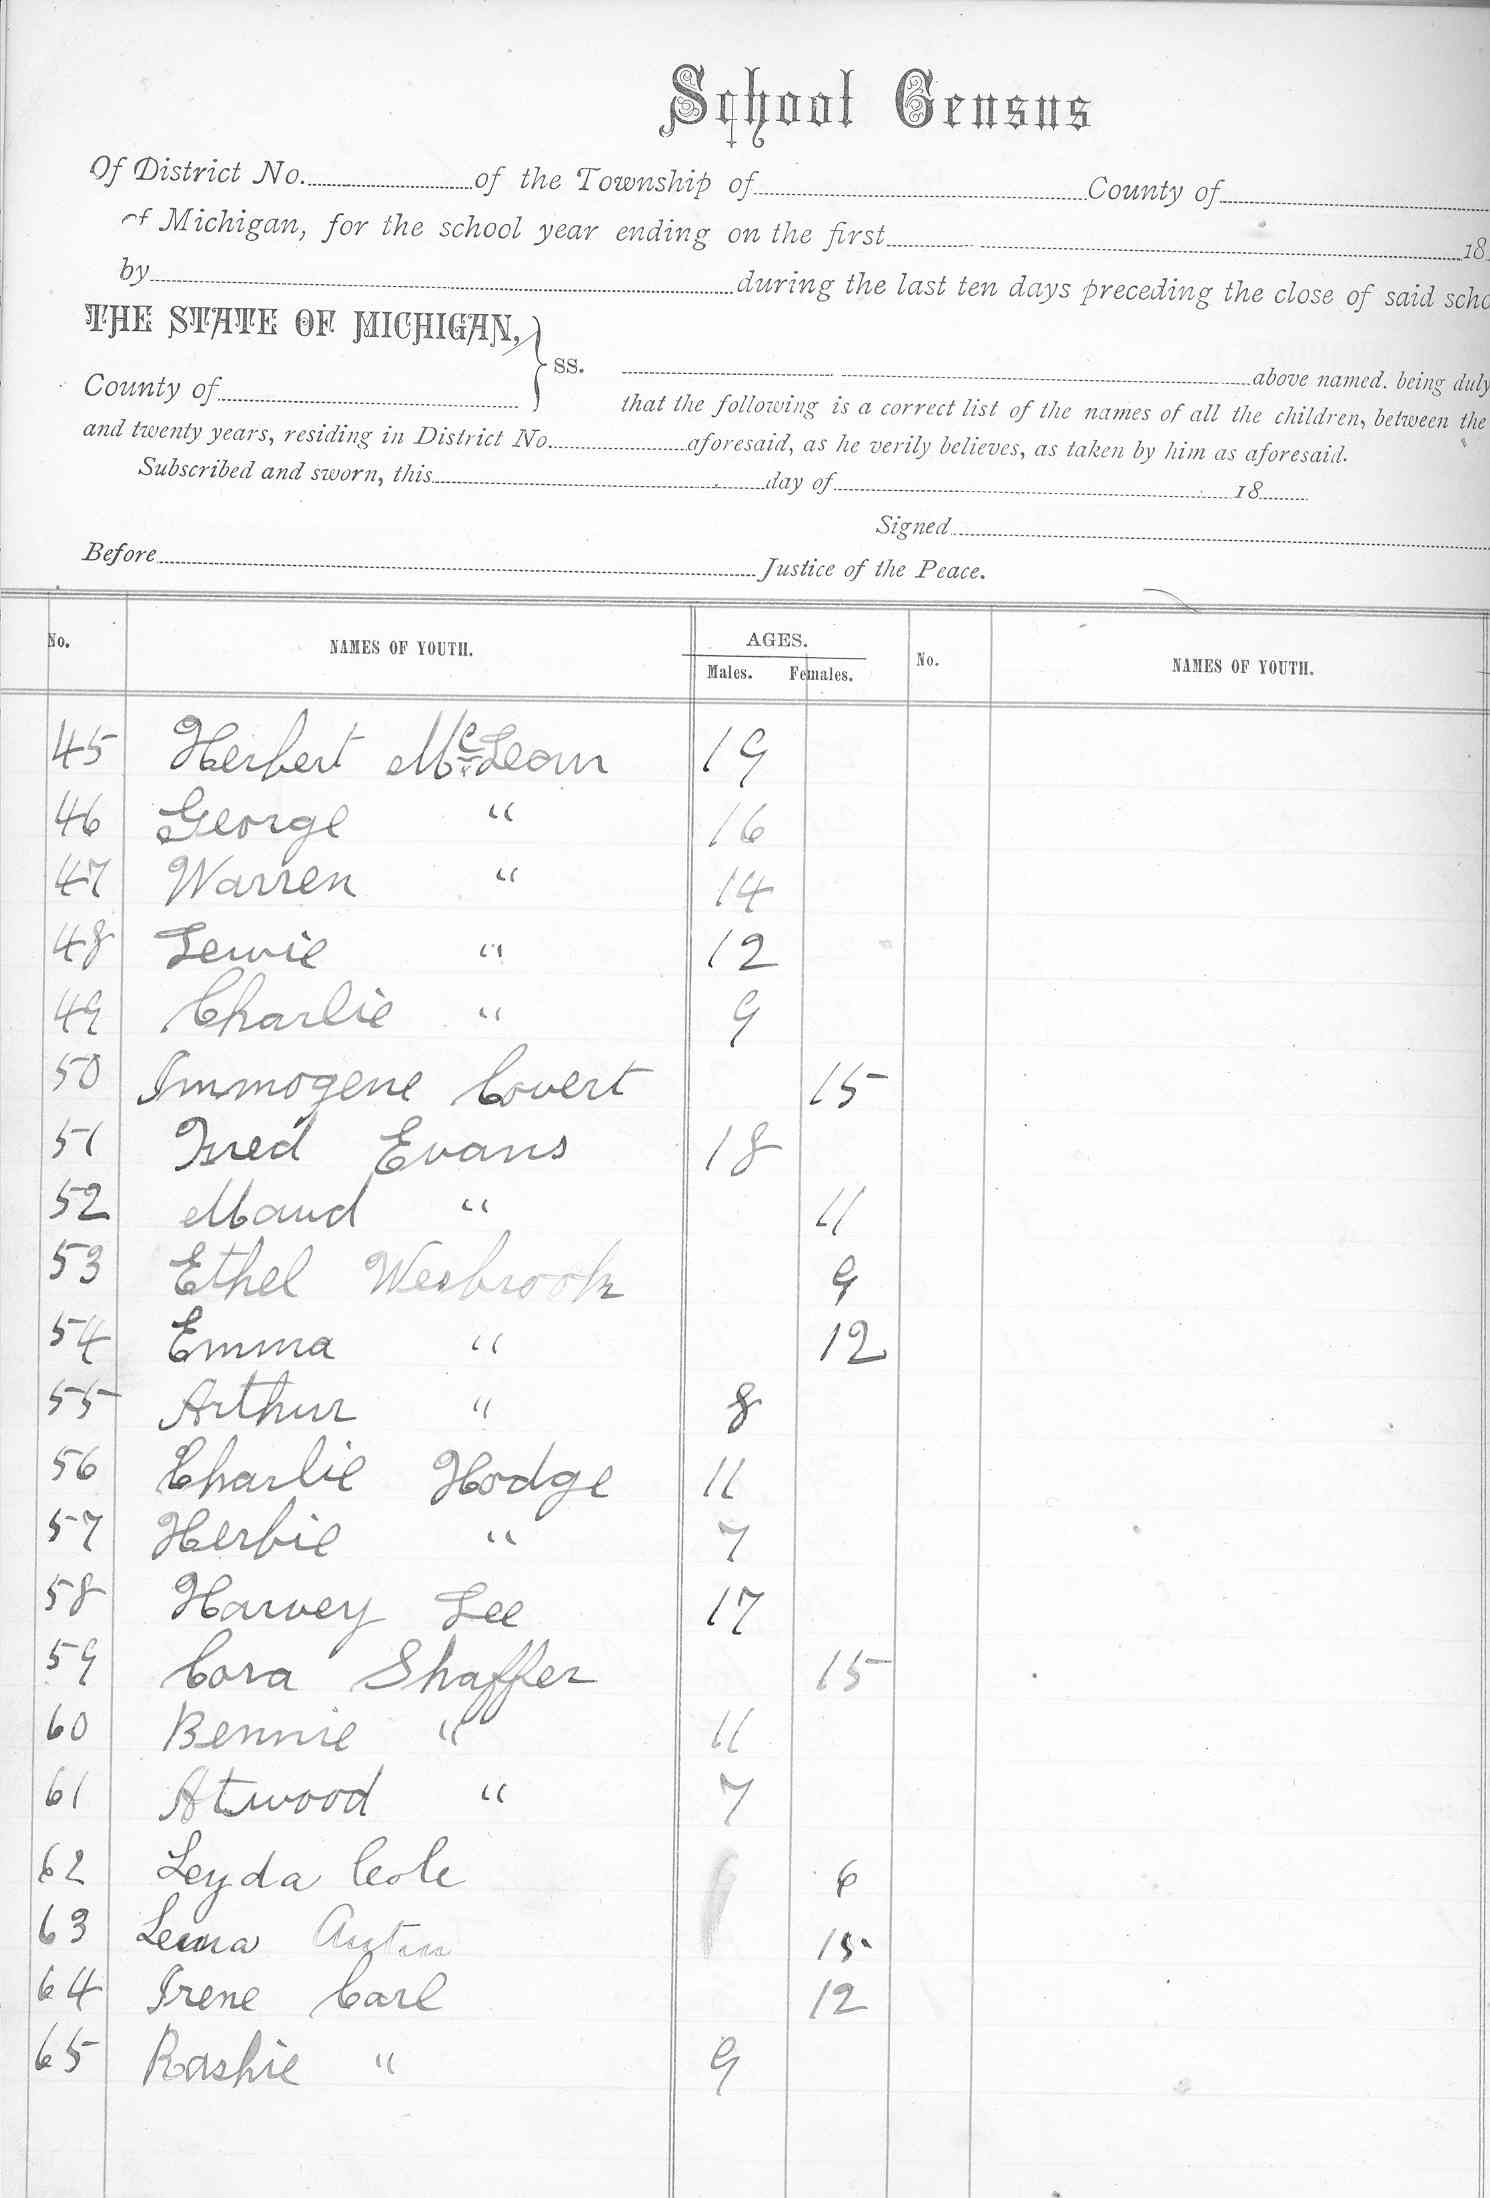 School Census
Of District No. of the Township of County of
of Michigan, for the school year ending on the first 18
by during the last ten days preceding the close of said scho
THE STATE OF MICHIGAN, } ss. above named. being duly
County of
that the following is a correct list of the names of all the children, between the
and twenty years, residing in District No. aforesaid, as he verily believes, as taken by him as aforesaid.
Subscribed and sworn, this day of 18
Signed
Before Justice of the Peace.
No. NAMES OF YOUTH. AGES. No. NAMES OF YOUTH.
Males. Females.
45 Herbert McLean 19
46 George " 16
47 Warren " 14
48 Lewie " 12
49 Charlie " 9
50 Immogene Covert 15
51 Fred Evans 18
52 Maud " 11
53 Ethel Wesbrook 9
54 Emma " 12
55 Arthur " 8
56 Charlie Hodge 11
57 Herbie " 7
58 Harvey Lee 17
59 Cora Shaffer 15
60 Bennie " 11
61 Atwood " 7
62 Leyda Cole 6
63 Lena 15
64 Irene Carl 12
65 Rashie " 9